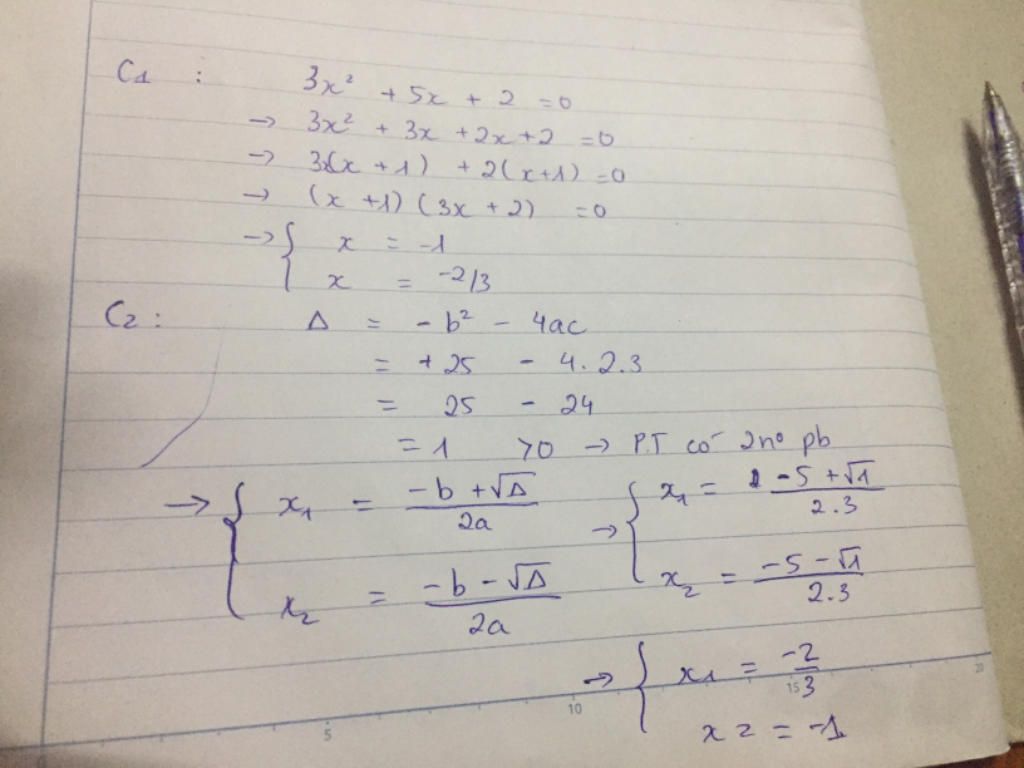 C1 : 3x² + 5x + 2 = 0
→ 3x² + 3x + 2x + 2 = 0
→ 3x(x + 1) + 2(x+1) = 0
→ (x +1) (3x + 2) = 0
→ { x = -1
x = -2/3
C2 : Δ = - b² - 4ac
= + 25 - 4.2.3
= 25 - 24
= 1 >0 → P.T có 2no pb
→ { x₁ = (-b + √Δ)/2a
x₂ = (-b - √Δ)/2a
→ { x₁ = (-5 + √1)/2.3
x₂ = (-5 - √1)/2.3
→ { x1 = -2/3
x2 = -1
5 10 15 20